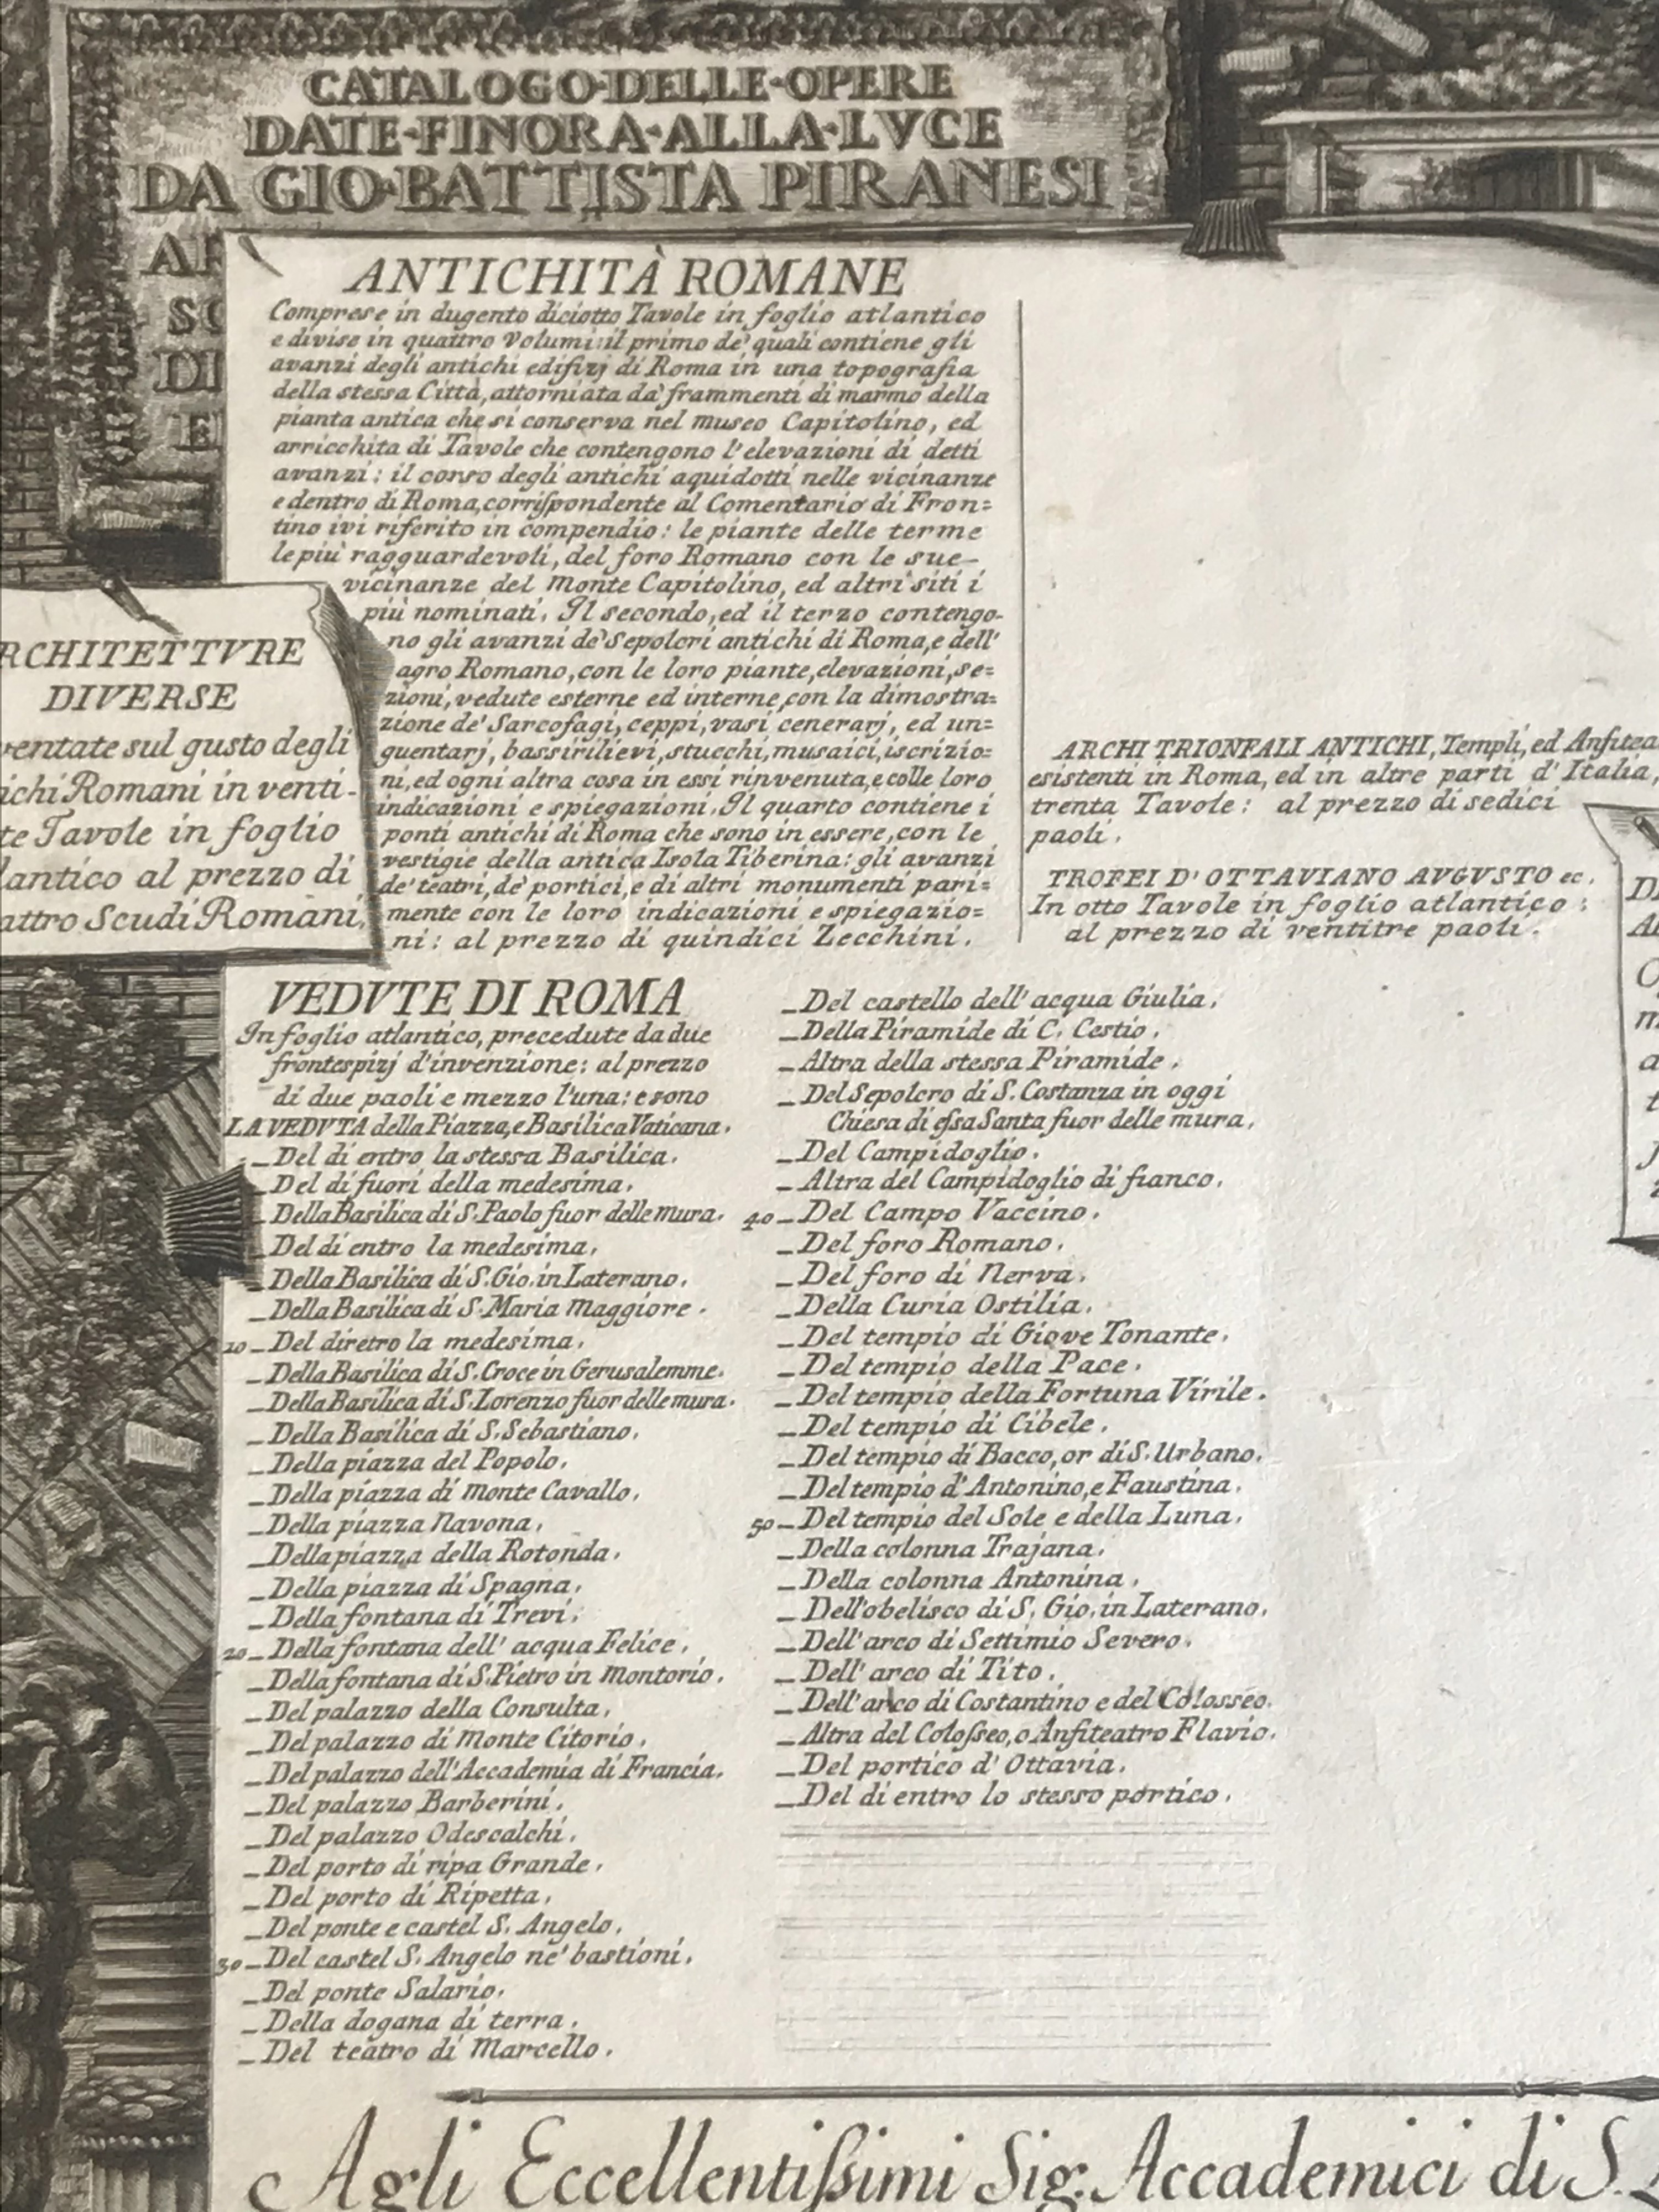 CATALOGO·DELLE·OPERE
DATE·FINORA·ALLA·LVCE
DA GIO·BATTISTA PIRANESI
AR
SC
DI
E
ANTICHITÀ ROMANE
Comprese in dugento diciotto Tavole in foglio atlantico
e divise in quattro Volumi: il primo de' quali contiene gli
avanzi degli antichi edifizj di Roma in una topografia
della stessa Città, attorniata da' frammenti di marmo della
pianta antica che si conserva nel museo Capitolino, ed
arricchita di Tavole che contengono l'elevazioni di detti
avanzi: il corso degli antichi aquidotti nelle vicinanze
e dentro di Roma, corriſpondente al Comentario di Fron=
tino ivi riferito in compendio: le piante delle terme
le più ragguardevoli, del foro Romano con le sue
vicinanze del Monte Capitolino, ed altri siti i
più nominati. Il secondo, ed il terzo contengo-
no gli avanzi de' Sepolcri antichi di Roma, e dell'
agro Romano, con le loro piante, elevazioni, se=
zioni, vedute esterne ed interne, con la dimostra=
zione de' Sarcofagi, ceppi, vasi cenerarj, ed un=
guentarj, bassirilievi, stucchi, musaici, iscrizio=
ni, ed ogni altra cosa in essi rinvenuta, e colle loro
indicazioni e spiegazioni. Il quarto contiene i
ponti antichi di Roma che sono in essere, con le
vestigie della antica Isola Tiberina: gli avanzi
de' teatri, de' portici, e di altri monumenti pari=
mente con le loro indicazioni e spiegazio=
ni: al prezzo di quindici Zecchini.
RCHITETTVRE
DIVERSE
ventate sul gusto degli
ichi Romani in venti-
te Tavole in foglio
lantico al prezzo di
attro Scudi Romani.
ARCHI TRIONFALI ANTICHI, Templi, ed Anfitea
esistenti in Roma, ed in altre parti d' Italia,
trenta Tavole: al prezzo di sedici
paoli.
TROFEI D' OTTAVIANO AVGVSTO ec.
In otto Tavole in foglio atlantico:
al prezzo di ventitre paoli.
VEDVTE DI ROMA
In foglio atlantico, precedute da due
frontespizj d'invenzione: al prezzo
di due paoli e mezzo l'una: e sono
LA VEDVTA della Piazza, e Basilica Vaticana.
_Del di entro la stessa Basilica.
_Del di fuori della medesima.
_Della Basilica di S. Paolo fuor delle mura.
_Del di entro la medesima.
_Della Basilica di S. Gio. in Laterano.
_Della Basilica di S. Maria Maggiore.
10_Del diretro la medesima.
_Della Basilica di S. Croce in Gerusalemme.
_Della Basilica di S. Lorenzo fuor delle mura.
_Della Basilica di S. Sebastiano.
_Della piazza del Popolo.
_Della piazza di Monte Cavallo.
_Della piazza Navona.
_Della piazza della Rotonda.
_Della piazza di Spagna.
_Della fontana di Trevi.
20_Della fontana dell' acqua Felice.
_Della fontana di S. Pietro in Montorio.
_Del palazzo della Consulta.
_Del palazzo di Monte Citorio.
_Del palazzo dell'Accademia di Francia.
_Del palazzo Barberini.
_Del palazzo Odescalchi.
_Del porto di ripa Grande.
_Del porto di Ripetta.
_Del ponte e castel S. Angelo.
30_Del castel S. Angelo ne' bastioni.
_Del ponte Salario.
_Della dogana di terra.
_Del teatro di Marcello.
_Del castello dell' acqua Giulia.
_Della Piramide di C. Cestio.
_Altra della stessa Piramide.
_Del Sepolcro di S. Costanza in oggi
Chiesa di eſsa Santa fuor delle mura.
_Del Campidoglio.
_Altra del Campidoglio di fianco.
40_Del Campo Vaccino.
_Del foro Romano.
_Del foro di Nerva.
_Della Curia Ostilia.
_Del tempio di Giove Tonante.
_Del tempio della Pace.
_Del tempio della Fortuna Virile.
_Del tempio di Cibele.
_Del tempio di Bacco, or di S. Urbano.
_Del tempio d' Antonino, e Faustina.
50_Del tempio del Sole e della Luna.
_Della colonna Trajana.
_Della colonna Antonina.
_Dell'obelisco di S. Gio. in Laterano.
_Dell'arco di Settimio Severo.
_Dell' arco di Tito.
_Dell'arco di Costantino e del Colosseo.
_Altra del Coloſseo, o Anfiteatro Flavio.
_Del portico d' Ottavia.
_Del di entro lo stesso portico.
Agli Eccellentiſsimi Sig. Accademici di S.